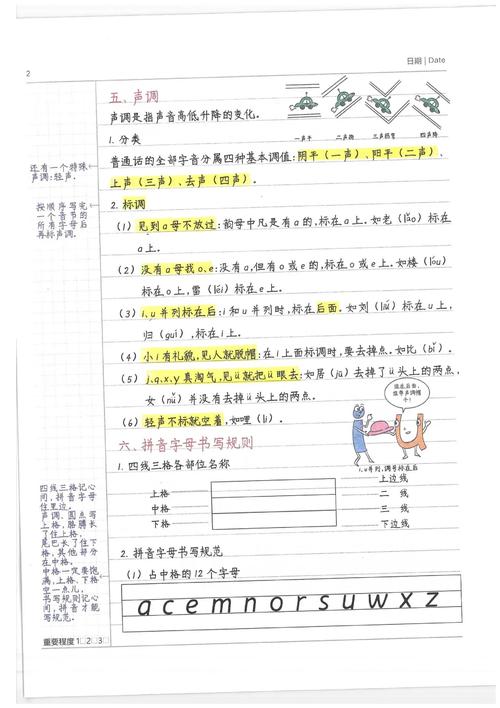 日期 | Date
2
五、声调
声调是指声音高低升降的变化。
一声平 二声扬 三声拐弯 四声降
1. 分类
普通话的全部字音分属四种基本调值:阴平(一声)、阳平(二声)、
上声(三声)、去声(四声)。
还有一个特殊
声调:轻声。
2. 标调
按顺序写完
一个音节的
所有字母后
再标声调。
(1)见到a母不放过:韵母中凡是有a的,标在a上。如老(lǎo)标在
a上。
(2)没有a母找o、e:没有a,但有o或e的,标在o或e上。如楼(lóu)
标在o上,雷(léi)标在e上。
(3)i、u并列标在后:i和u并列时,标在后面。如刘(liú)标在u上,
归(guī),标在i上。
(4)小i有礼貌,见人就脱帽:在i上面标调时,要去掉点。如比(bǐ)。
(5)j、q、x、y真淘气,见ü就把ü眼去:如居(jū)去掉了ü头上的两点,
女(nǚ)并没有去掉ü头上的两点。
(6)轻声不标就空着,如哩(li)。
我在后面,
i、u并列,调号标在后
六、拼音字母书写规则
1. 四线三格各部位名称
上格
中格
下格
上边线
二 线
三 线
下边线
四线三格记心
间,拼音字母
住里边。
声调、圆点写
上格,胳膊长
了住上格,
尾巴长了住下
格,其他部分
在中格。
中格一定要饱
满,上格、下格
空一点儿,
书写规则记心
间,拼音才能
写规范。
2. 拼音字母书写规范
(1)占中格的12个字母
a c e m n o r s u w x z
重要程度 1□2□3□